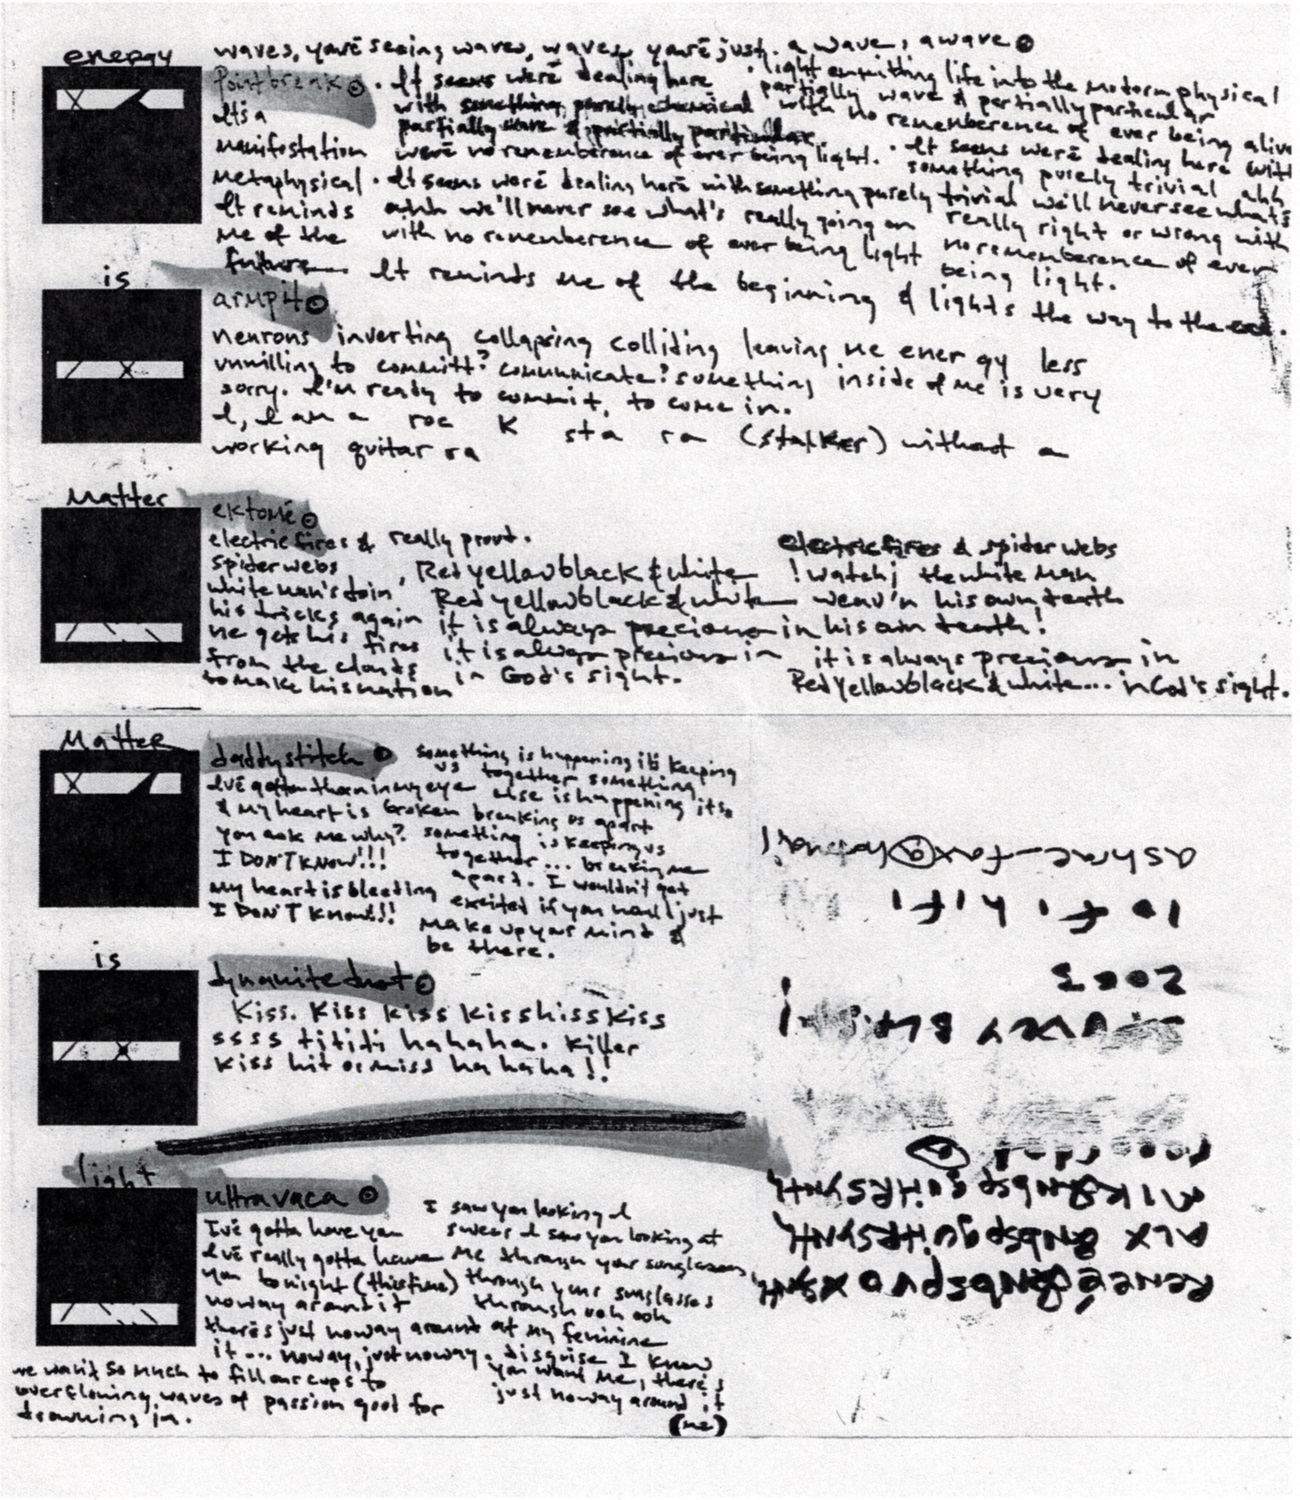 energy
waves, youre seeing waves, waves, youre just. a wave, a wave
Pointbreak
It's a
manifestation
metaphysical
It reminds
me of the
future
. It seems were dealing here
with something purely chemical
partially wave & partially particular
were no rememberence of ever being light.
. It seems were dealing here with something purely trivial
ahh we'll never see what's really going on
with no rememberence of ever being light
. light emitting life into the motorm physical
partially wave & partially particular
with no rememberence of ever being alive
. It seems were dealing here with
something purely trivial ahh
we'll never see what's
really right or wrong with
no rememberence of ever
being light.
It reminds me of the beginning & lights the way to the end.
is
armpit
neurons inverting collapsing colliding leaving me ener gy less
unwilling to committ? communicate? something inside of me is very
sorry. I'm ready to commit, to come in.
I, I am a roc K sta ra (stalker) without a
working guitar ra
Matter
ektomé
electric fires &
spider webs
white man's doin
his tricks again
he gets his fires
from the clouds
to make his nation
really proud.
Red yellow black & white
Red yellow black & white
it is always precious in
it is always precious in
in God's sight.
electric fires & spider webs
! watch ¡ the white man
weav'n his own, teath
in his own teath!
it is always precious in
Red Yellow black & white... in God's sight.
Matter
daddystitch
I've gotten them in my eye
& my heart is broken
you ask me why?
I DON'T KNOW!!!
my heart is bleeding
I DON'T KNOW!!!
something is happening it's keeping
us together something
else is happening its
breaking us apart
something is keeping us
together... breaking me
apart. I wouldn't get
excited if you would just
make up your mind &
be there.
is
dynamite
Kiss. Kiss kiss kisshisskiss
ssss tititi hahaha. killer
kiss hit or miss ha ha ha!!
light
ultravaca
I've gotta have you
I've really gotta have
you tonight (this time)
noway around it
there's just noway around
it... noway, just noway.
we want so much to fill our cups to
overflowing waves of passion good for
drowning in.
I saw you looking I
swear I saw you looking at
me through your sunglasses,
through your sunglasses
through ooh ooh
at my feminine
disguise I know
you want me, there's
just noway around it
(me)
ashrae_fax@hotmail
lo fi hi fi
2003
RENEÉ &nbsp
ALX &nbsp guitRSYNTH
MIK &nbsp guitRSYNTH